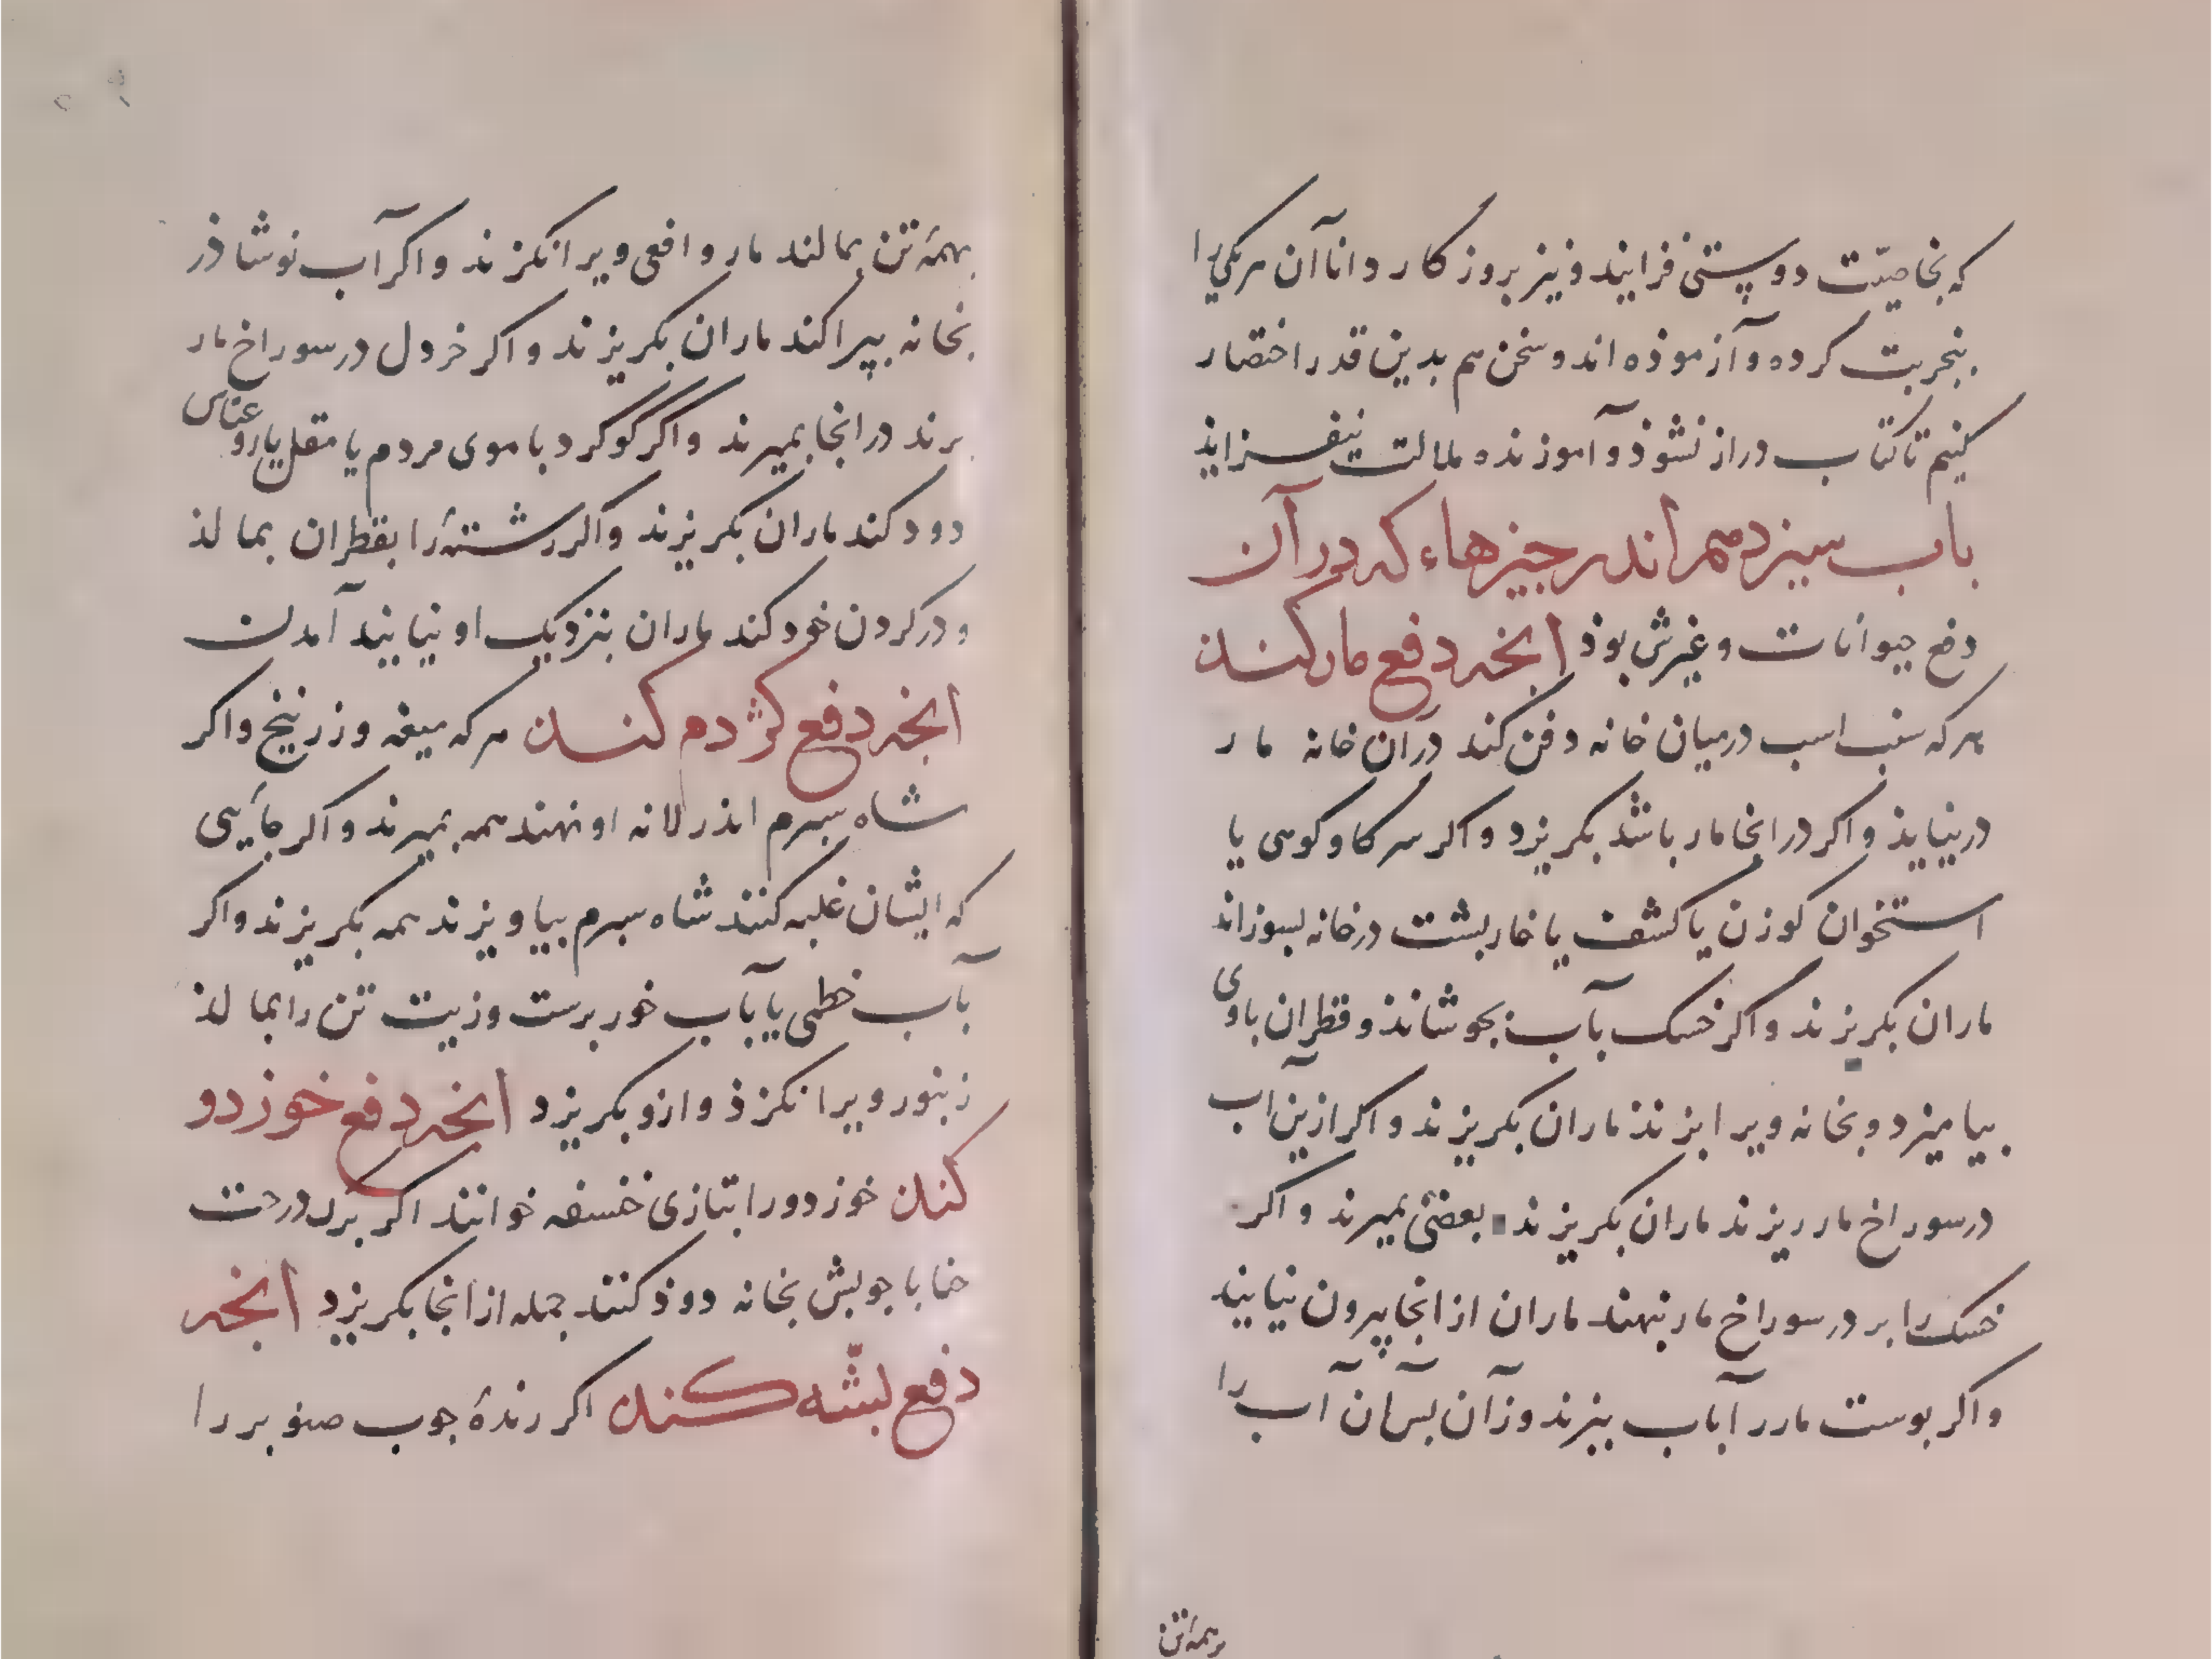 که بخاصیّت دوستی فزایند و نیز بروزکار دانا آن هریکی را
بتجربت کرده و آزموذه اند و سخن هم بدین قدر اختصار
کنیم تا کتاب دراز نشوذ و آموزنده ملالت نیفزایذ
باب سیزدهم اندر چیزهاء که در آن
دفع حیوانات و غیرش بوذ آنچه دفع مار کند
هرکه سنب اسب درمیان خانه دفن کند در آن خانه مار
در نیایذ و اکر در انجا مار باشد بکریزد و اکر سرکاو کوهی یا
استخوان کوزن یا کشف یا خارپشت درخانه بسوزاند
ماران بکریزند و اکر خسک بآب بجوشانذ و قطران باوی
بیامیزد و بخانه ویرا بزنذ ماران بکریزند و اکر ازین آب
درسوراخ مار ریزند ماران بکریزند بعضی بمیرند و اکر
خسک را بر در سوراخ مار نهند ماران از انجا بیرون نیایند
و اکر پوست مار را بآب بپزند و زآن پس آن آب را
برهمه تن
بهمۀ تن بمالند مار و افعی ویرا نکزند و اکر آب نوشاذر
بخانه بپراکند ماران بکریزند و اکر خردل درسوراخ مار
برند در انجا بمیرند و اکر کوکرد با موی مردم یا مقل یا روعناس
دود کند ماران بکریزند و اکر رشتۀ را بقطران بمالذ
و درکردن خود کند ماران بنزدیک او نیایند آمدن
آنچه دفع کژدم کند هرکه میعه و زرنیخ و اکر
شاه سپرم انذر لانه او نهند همه بمیرند و اکر جایی
که ایشان غلبه کنند شاه سپرم بیاویزند همه بکریزند و اکر
بآب خطمی یا بآب خور برست و زیت تن را بمالذ
زنبور ویرا نکزذ و ازو بکریزد آنچه دفع خوزدو
کند خوزدو را بتازی خنسفه خوانند اکر برک درخت
حنا با چوبش بخانه دوذ کنند جمله از انجا بکریزد آنچه
دفع پشّه کند اکر رندۀ چوب صنوبر را